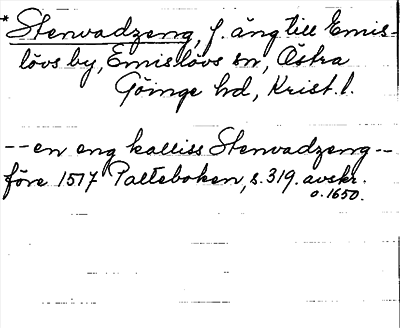 *Stenvadzeng, f. äng till Emis-
lövs by, Emislövs sn, Östra
Göinge hd, Krist. l.
--en eng kalliss Stenvadzeng--
före 1517 Palteboken, s. 319. avskr.
o. 1650.